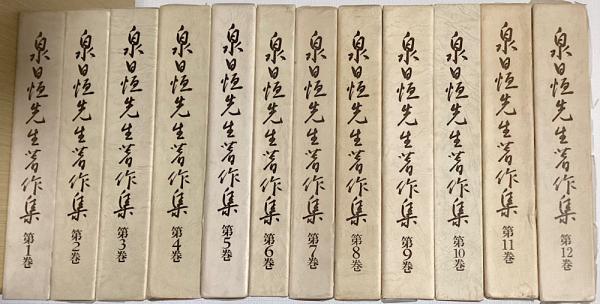 泉日恒先生著作集 第1巻
泉日恒先生著作集 第2巻
泉日恒先生著作集 第3巻
泉日恒先生著作集 第4巻
泉日恒先生著作集 第5巻
泉日恒先生著作集 第6巻
泉日恒先生著作集 第7巻
泉日恒先生著作集 第8巻
泉日恒先生著作集 第9巻
泉日恒先生著作集 第10巻
泉日恒先生著作集 第11巻
泉日恒先生著作集 第12巻